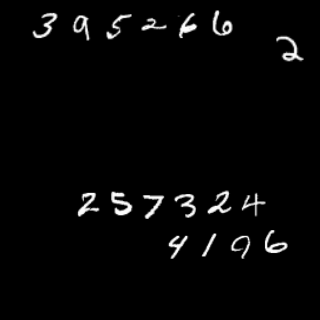 395266
2
257324
4196